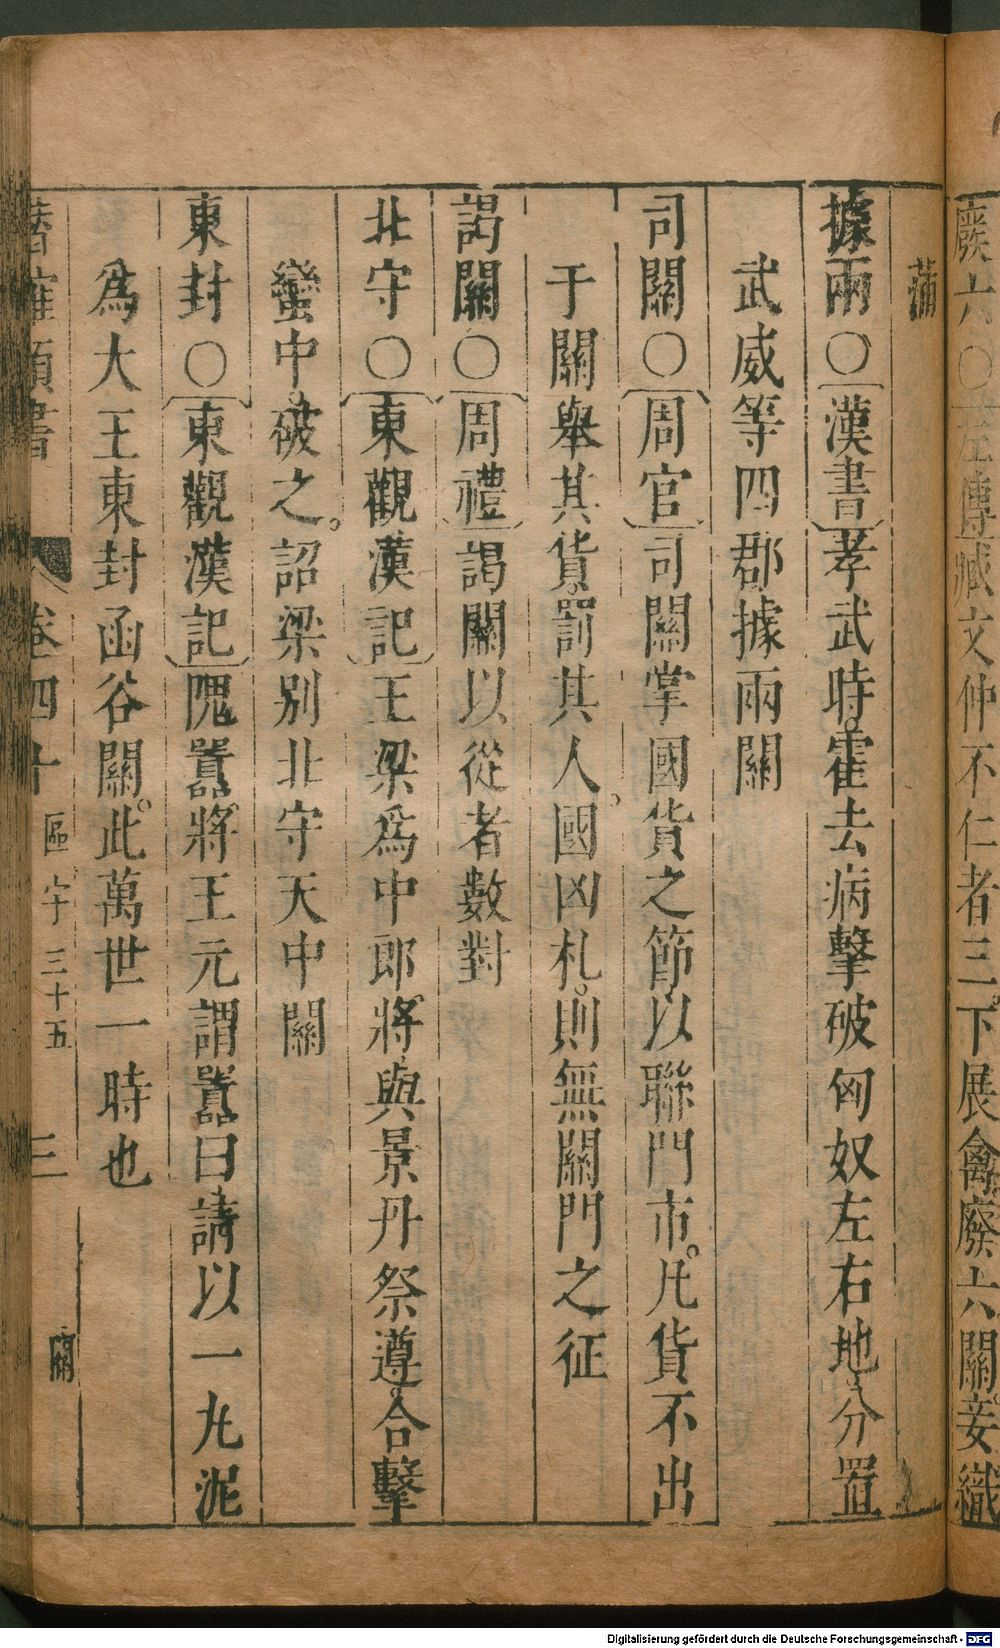 廢六○左傳臧文仲不仁者三下展禽廢六關妾織
蒲
據兩○漢書孝武時霍去病擊破匈奴左右地分置
武威等四郡據兩關
司關○周官司關掌國貨之節以聯門市凡貨不出
于關舉其貨罰其人國凶札則無關門之征
謁關○周禮謁關以從者數對
北守○東觀漢記王梁爲中郎將與景丹祭遵合擊
蠻中破之詔梁別北守天中關
東封○東觀漢記隗囂將王元謂囂曰請以一丸泥
爲大王東封函谷關此萬世一時也
潛確類書 卷四十 區宇三十五 三 關
Digitalisierung gefördert durch die Deutsche Forschungsgemeinschaft - DFG